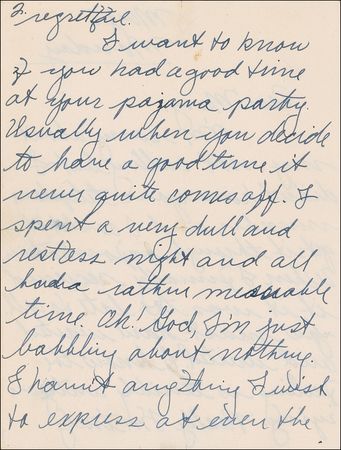 2. regretful.
I want to know
if you had a good time
at your pajama party.
Usually when you decide
to have a good time it
never quite comes off. I
spent a very dull and
restless night and all
had a rather miserable
time. Oh! God, I'm just
babbling about nothing.
I haven't anything I wish
to express at even the